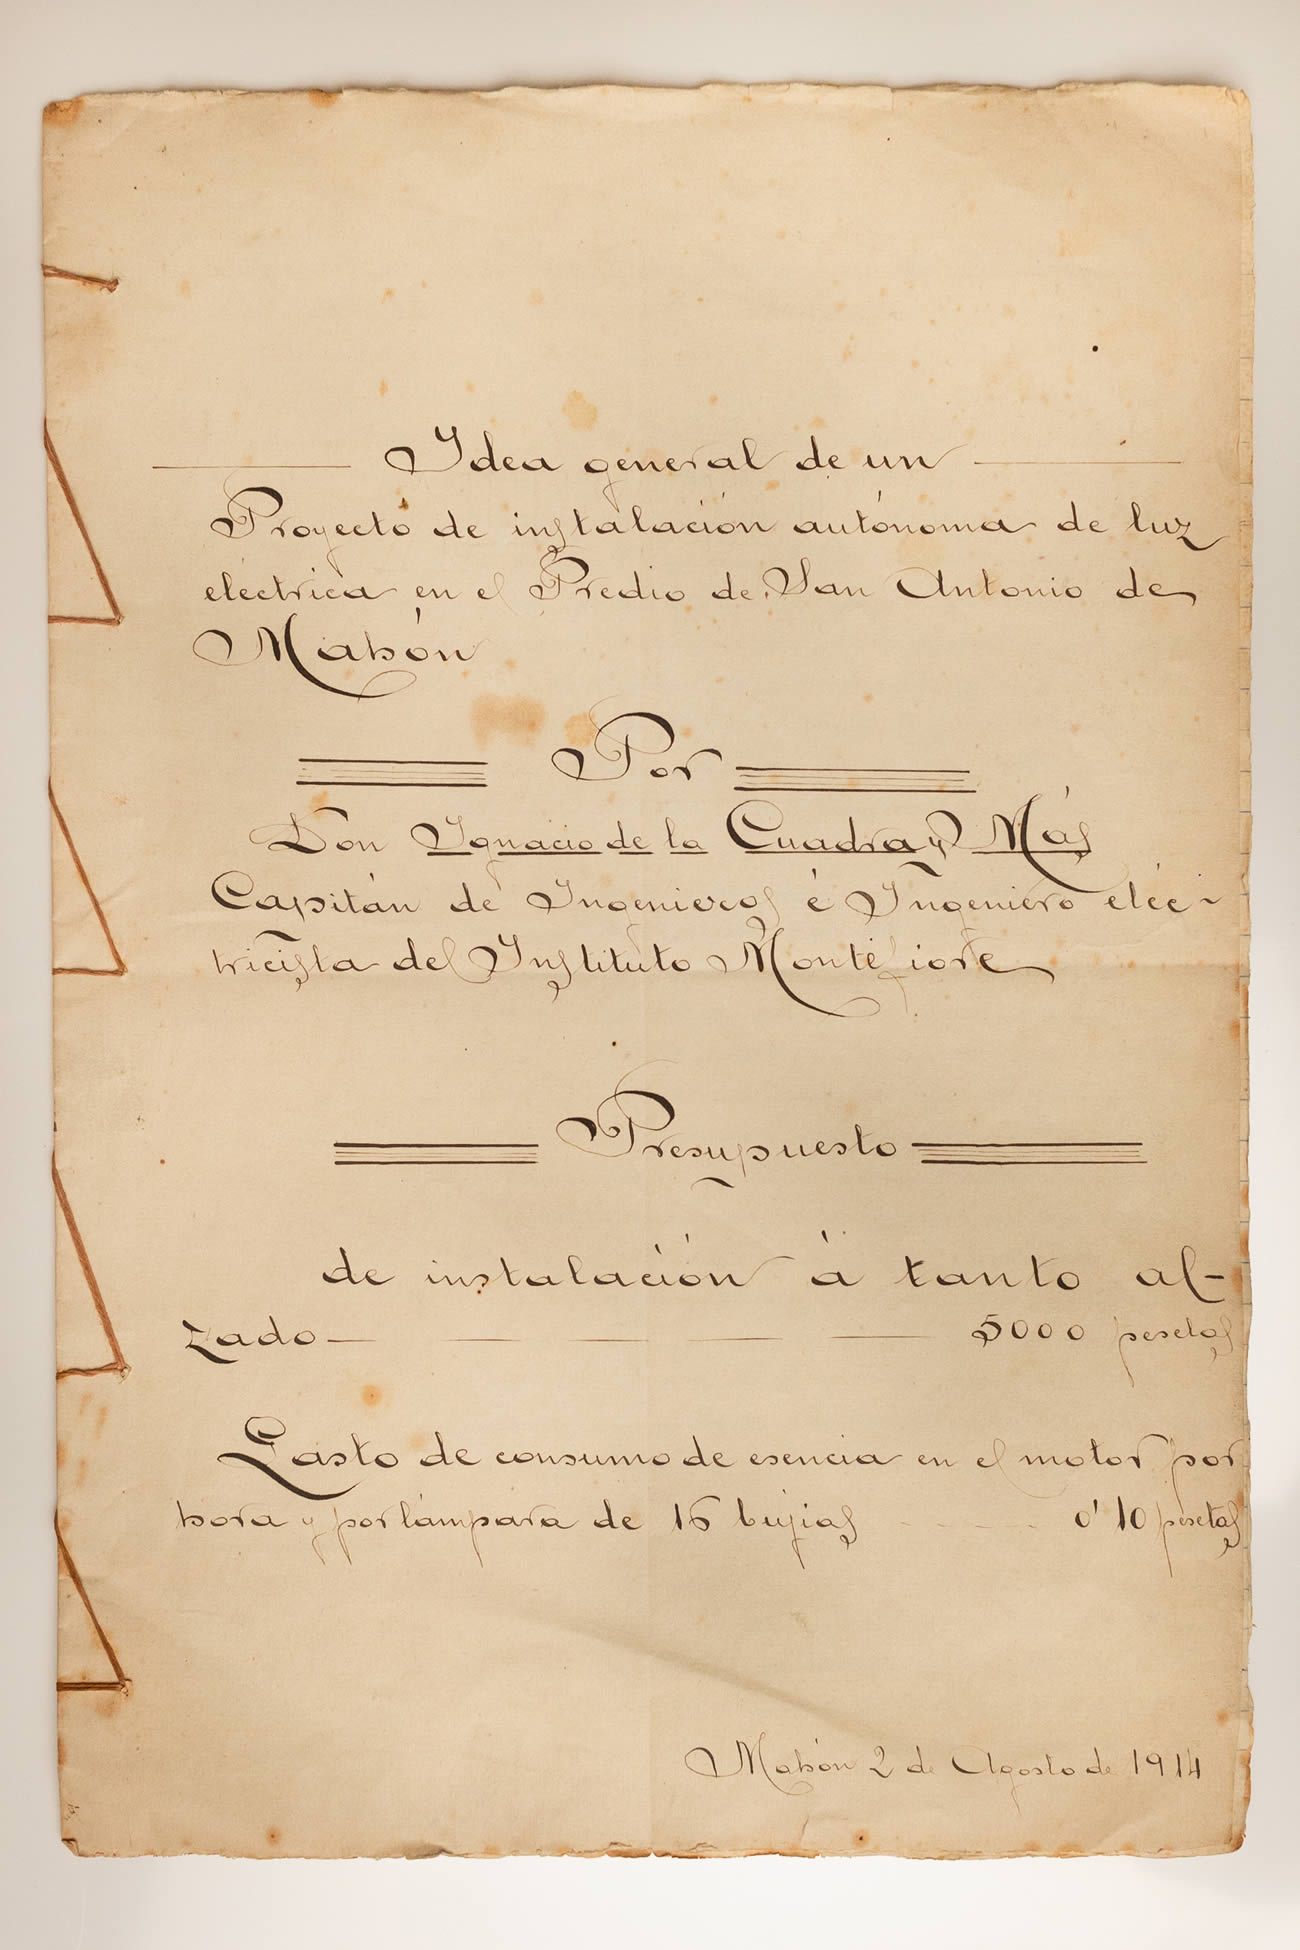 Idea general de un
Proyecto de instalación autónoma de luz
eléctrica en el Predio de San Antonio de
Mahón
Por
Don Ignacio de la Cuadra y Más
Capitán de Ingenieros é Ingeniero eléc-
tricista del Instituto Montefiore
Presupuesto
de instalación á tanto al-
zado 5000 pesetas
Gasto de consumo de esencia en el motor por
hora y por lámpara de 16 bujias 0'10 pesetas
Mahón 2 de Agosto de 1914